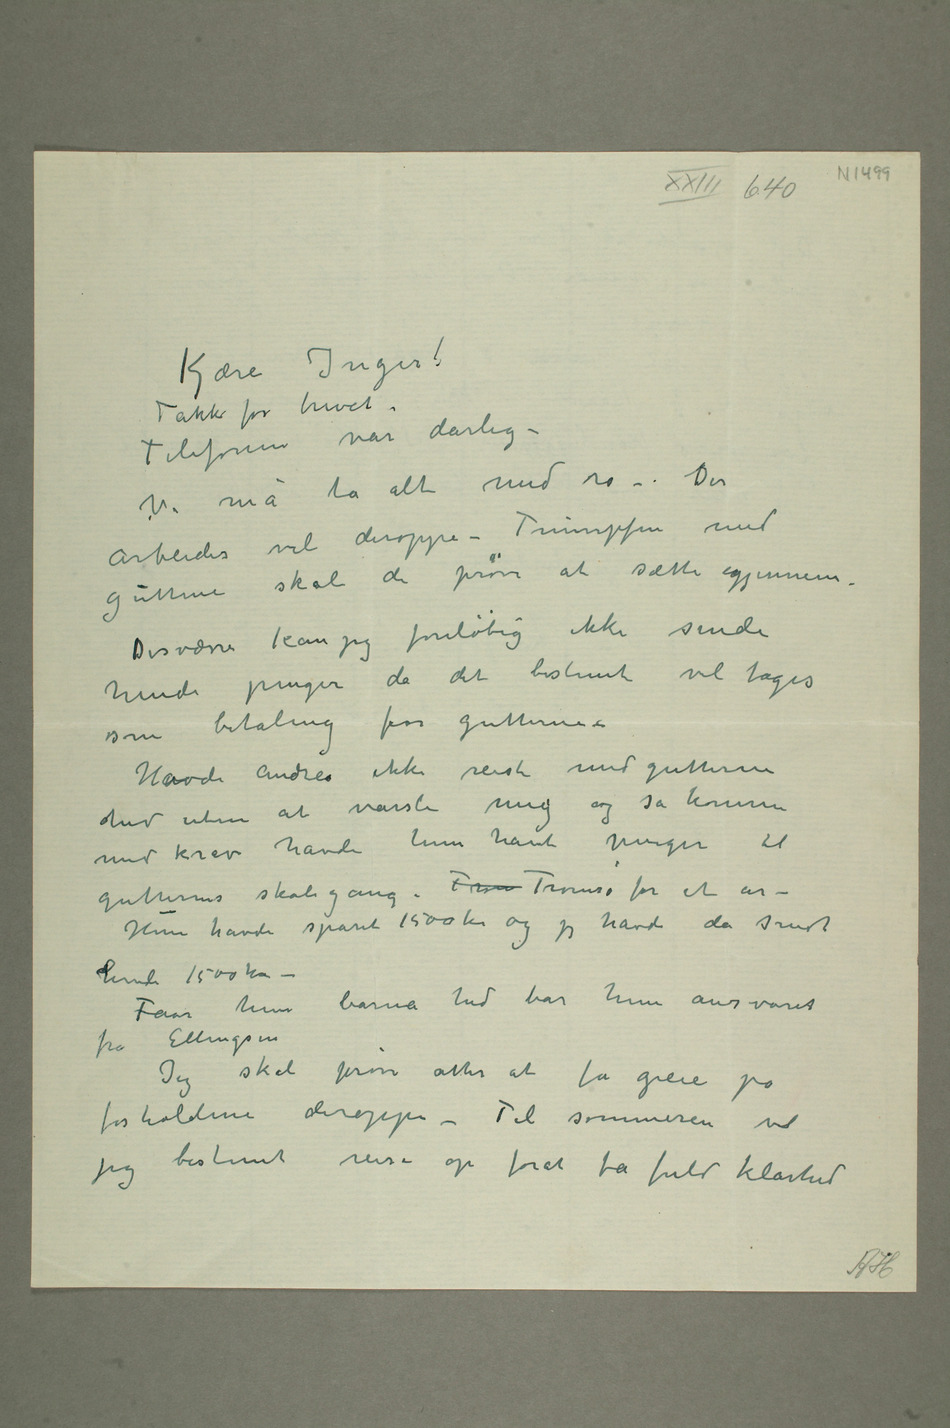 XXIII 640 N1499
Kjære Inger!
Takk for brevet.
Telefonen var dårlig –
Vi må ta alt med ro –. Der
arbeides vel deroppe – Triumpfen med
guttene skal de prøve at sætte gjennem.
Desværre kan jeg foreløbig ikke sende
hende penger da det bestemt vil tages
som betaling for gutterne –
Havde Andrea ikke reist med gutterne
hid uten at varsle mig og så komme
med krav havde hun havt penger til
gutternes skolegang. From Tromsø for et år –
Hun havde sparet 1500 kr og jeg havde da sendt
hende 1500 kr –
Faar hun barna hid bær hun ansvaret
fra Ellingsen
Jeg skal prøve atter at få greie på
forholdene deroppe – Til sommeren vil
jeg bestemt reise op forat få fuld klarhed